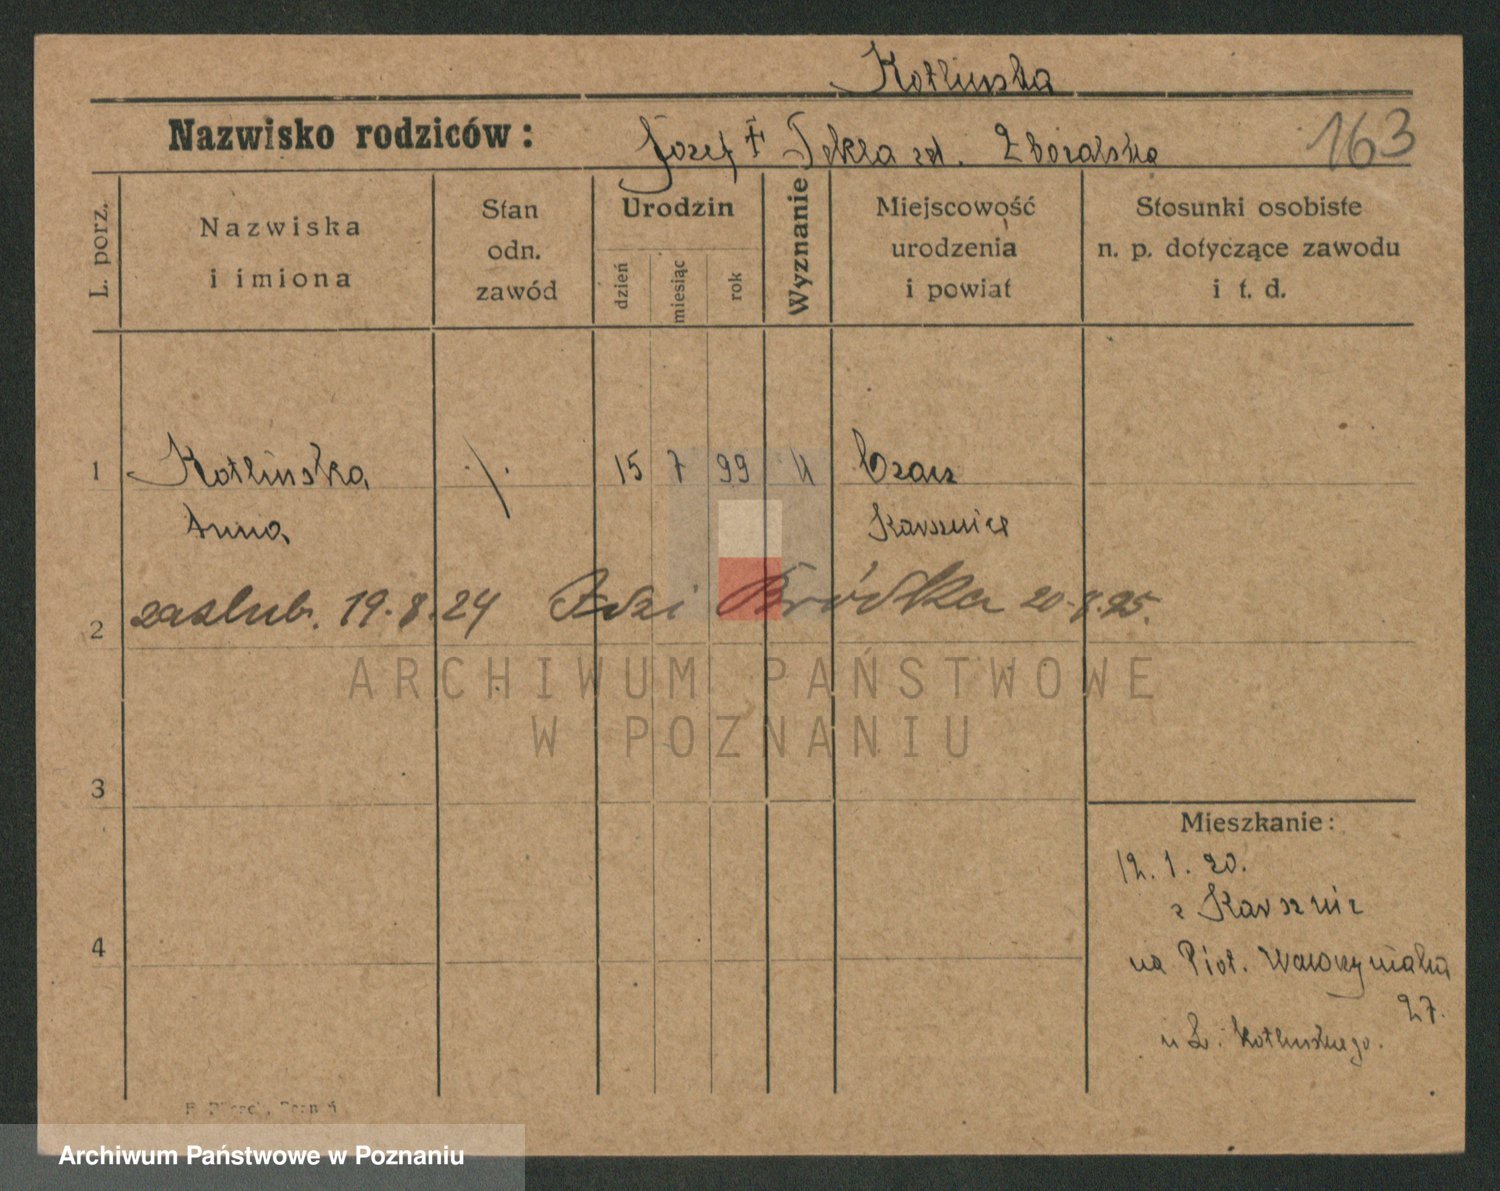 Kotlinska
Nazwisko rodziców: Józef † Tekla zd. Zboralska
163
L. porz.
Nazwiska
i imiona
Stan
odn.
zawód
Urodzin
dzień
miesiąc
rok
Wyznanie
Miejscowość
urodzenia
i powiat
Stosunki osobiste
n. p. dotyczące zawodu
i t. d.
1 Kotlińska ./. 15 7 99 Czacz
Anna
2 zaslub. 19.8.24 Idzi Bródka 20.8.95.
3
4
Mieszkanie:
12. 1. 20.
z
na Piot. Wawrzyniaka
27.
u Kotlinskiego.
ARCHIWUM PAŃSTWOWE
W POZNANIU
Archiwum Państwowe w Poznaniu